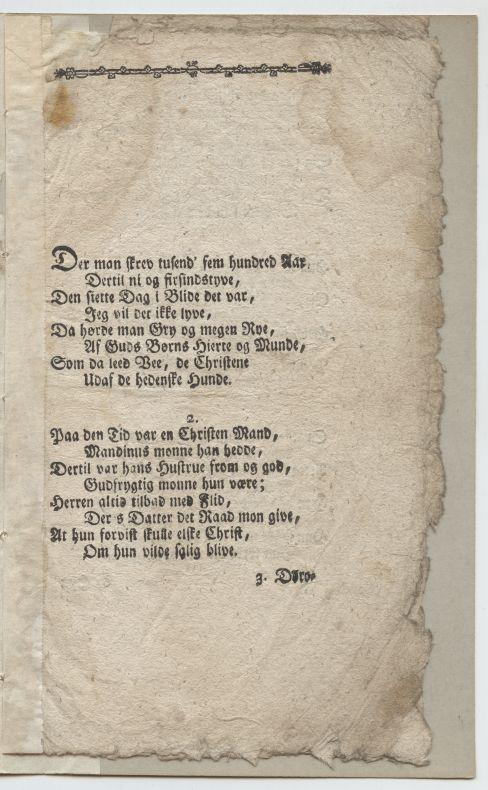 Der man skrev tusend' fem hundred Aar,
Dertil ni og firsindstyve,
Den siette Dag i Blide det var,
Jeg vil det ikke lyve,
Da hørde man Gry og megen Rve,
Af Guds Børns Hierte og Munde,
Som da leed Vee, de Christene
Udaf de hedenske Hunde.
2.
Paa den Tid var en Christen Mand,
Mandinus monne han hedde,
Dertil var hans Hustrue from og god,
Gudfrygtig monne hun være;
Herren altid tilbad med Flid,
Der s Datter det Raad mon give,
At hun forvist skulle elske Christ,
Om hun vilde salig blive.
3. Doro-